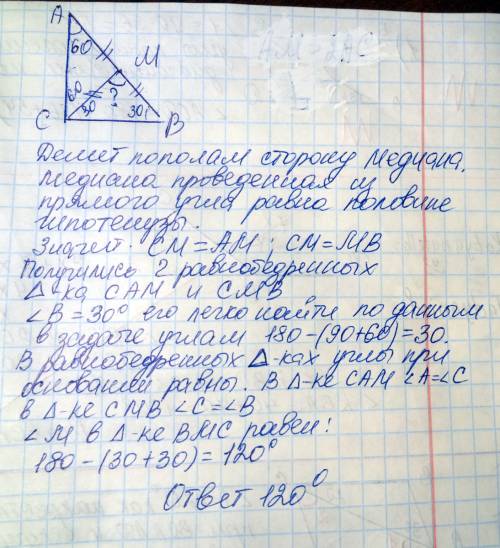 A
60
M
60
30
?
30
C
B
Делит пополам сторону Медиана.
Медиана проведенная из
прямого угла равна половине
гипотенузы.
Значит. CM = AM; CM = MB
Получились 2 равнобедренных
Δ-ка CAM и CMB
∠B = 30° его легко найти по данным
в задаче углам 180-(90+60)=30.
В равнобедренных Δ-ках углы при
основании равны. В Δ-ке CAM ∠A=∠C
в Δ-ке CMB ∠C=∠B
∠M в Δ-ке BMC равен:
180-(30+30)=120°
Ответ 120°